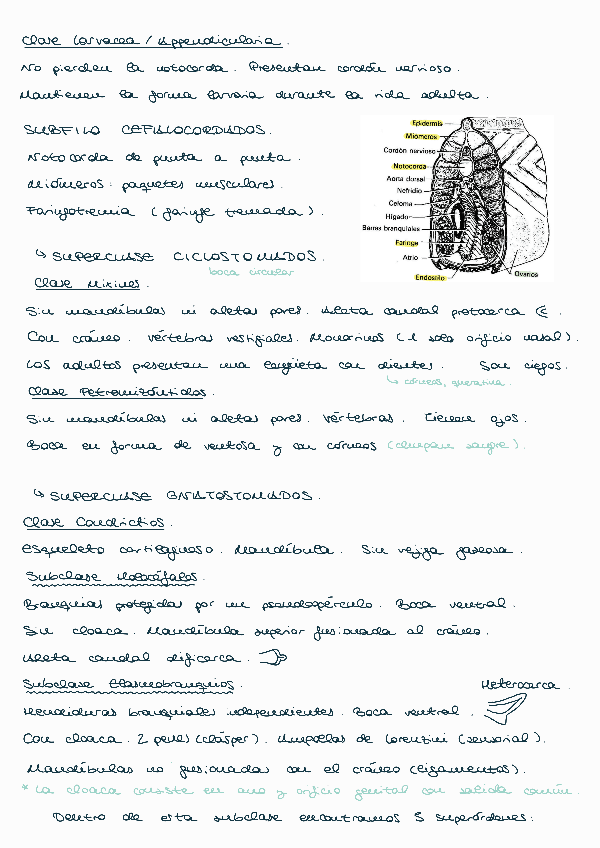 Clase Larvacea / Appendicularia.
No pierden la notocorda. Presentan cordón nervioso.
Mantienen la forma larvaria durante la vida adulta.
SUBFILO CEFALOCORDADOS.
Notocorda de punta a punta.
Miómeros: paquetes musculares.
Faringotremia (faringe tremada).
Epidermis
Miómeros
Cordón nervioso
Notocorda
Aorta dorsal
Nefridio
Celoma
Hígado
Barras branquiales
Faringe
Atrio
Endostilo
Ovarios
↳ SUPERCLASE CICLOSTOMADOS.
boca circular
Clase Mixines.
Sin mandíbulas ni aletas pares. Aleta caudal protocerca
Con cráneo. Vértebras vestigiales. Monorrinos (1 solo orificio nasal).
Los adultos presentan una lengüeta con dientes. Son ciegos.
↳ córneos, queratina.
Clase Petromizóntidos.
Sin mandíbulas ni aletas pares. Vértebras. Tienen ojos.
Boca en forma de ventosa y con córneos (chupan sangre).
↳ SUPERCLASE GNATOSTOMADOS.
Clase Condrictios.
Esqueleto cartilaginoso. Mandíbula. Sin vejiga gaseosa.
Subclase Holocéfalos.
Branquias protegidas por un pseudopérculo. Boca ventral.
Sin cloaca. Mandíbula superior fusionada al cráneo.
Aleta caudal dificerca.
Subclase Elasmobranquios.
Heterocerca.
Hendiduras branquiales independientes. Boca ventral.
Con cloaca. 2 penes (clásper). Ampollas de Lorenzini (sensorial).
Mandíbulas no fusionadas con el cráneo (ligamentos).
* La cloaca consiste en ano y orificio genital con salida común.
Dentro de esta subclase encontramos 5 superórdenes: